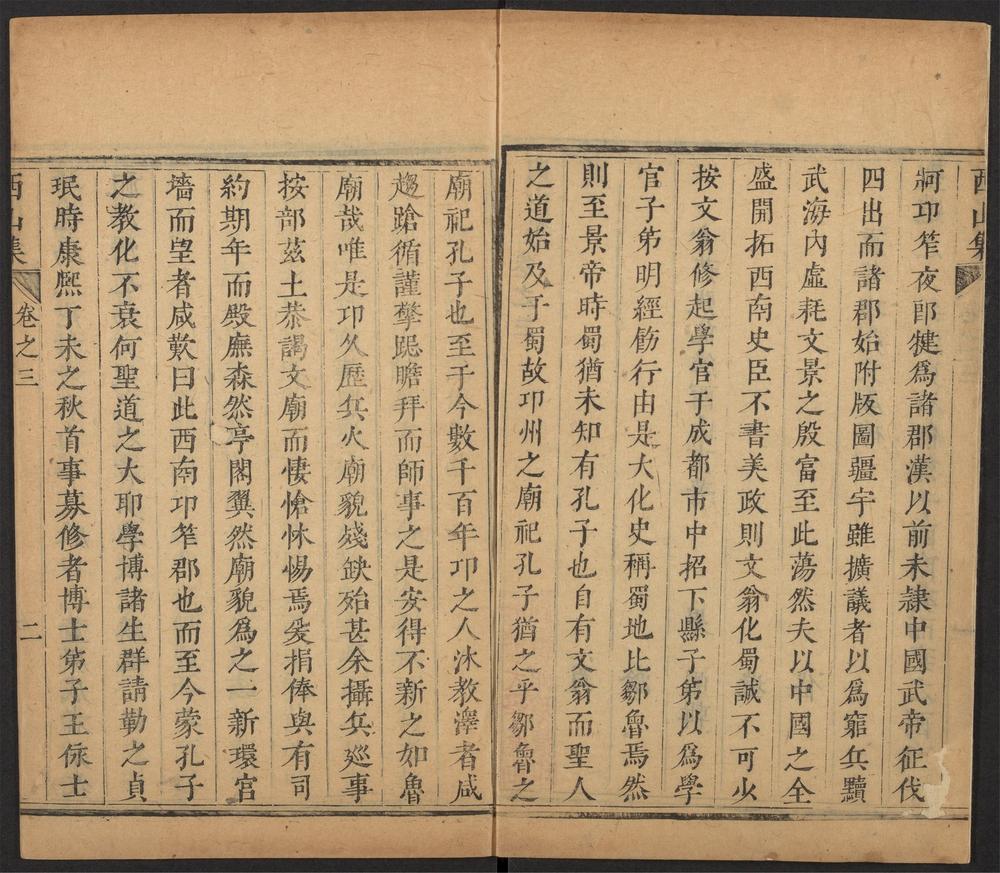 西山集
牁邛筰夜郎犍爲諸郡漢以前未隷中國武帝征伐
四出而諸郡始附版圖疆宇雖擴議者以爲窮兵黷
武海內虛耗文景之殷富至此蕩然夫以中國之全
盛開拓西南史臣不書美政則文翁化蜀誠不可少
按文翁修起學官于成都市中招下縣子第以爲學
官子第明經飭行由是大化史稱蜀地比鄒魯焉然
則至景帝時蜀猶未知有孔子也自有文翁而聖人
之道始及于蜀故邛州之廟祀孔子猶之乎鄒魯之
廟祀孔子也至于今數千百年邛之人沐教澤者咸
趨蹌循謹擎跽瞻拜而師事之是安得不新之如魯
廟哉唯是邛久歷兵火廟貌殘缺殆甚余攝兵廵事
按部茲土恭謁文廟而悽愴怵惕焉爰捐俸與有司
約期年而殿廡森然亭閣翼然廟貌爲之一新環宫
墻而望者咸歎曰此西南邛筰郡也而至今蒙孔子
之教化不衰何聖道之大耶學博諸生群請勒之貞
珉時康熈丁未之秋首事募修者博士第子王俅士
西山集
卷之三
二